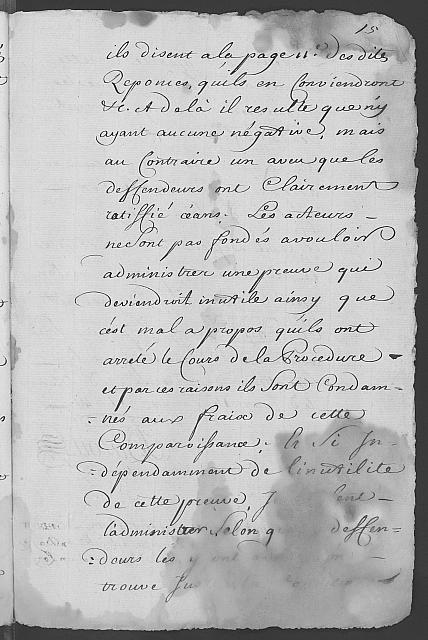 15
ils disent a la page 11.e des dites
Reponces, quils en Conviendront
&c. Et de là il resulte que ny
ayant aucune négative, mais
au Contraire un aveu que les
deffendeurs ont Clairement
ratiffié céans. Les acteurs
ne sont pas fondés a vouloir
administrer une preuve qui
deviendroit inutile ainsy que
c'est mal a propos qu'ils ont
arreté le Cours de la Procedure
et par ces raisons ils sont Condam-
-nés aux fraix de cette
Comparoissance. Et Si In-
-dépendamment de l'inutilité
de cette preuve,
l'administrer Selon deffen-
-deurs les
trouve